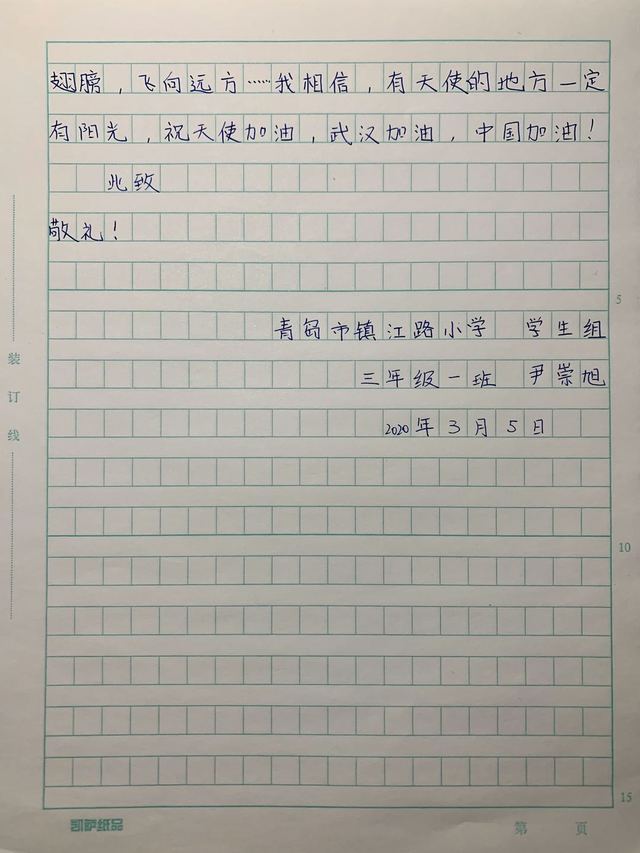 翅膀，飞向远方……我相信，有天使的地方一定
有阳光，祝天使加油，武汉加油，中国加油！
此致
敬礼！
青岛市镇江路小学 学生组
三年级一班 尹崇旭
2020年3月5日
装订线
5
10
15
凯萨纸品
第 页